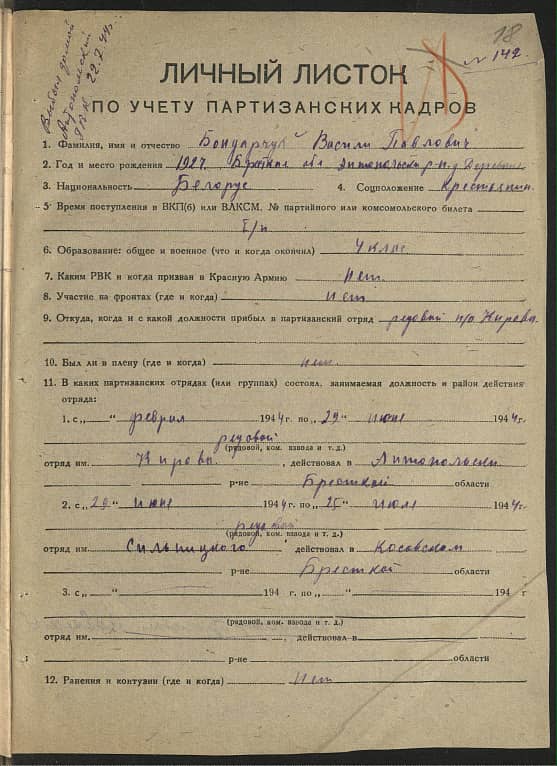 18
№ 142
Выбыл домой
Антопольский
РВК 22.7.44г.
ЛИЧНЫЙ ЛИСТОК
ПО УЧЕТУ ПАРТИЗАНСКИХ КАДРОВ
1. Фамилия, имя и отчество Бондарчук Васили Павлович
2. Год и место рождения 1927 Бреткая обл Антопольски р-н д
3. Национальность Белорус 4. Соцположение крестьянин
5. Время поступления в ВКП(б) или ВЛКСМ, № партийного или комсомольского билета
Б/п
6. Образование: общее и военное (что и когда окончил) 4 клас
7. Каким РВК и когда призван в Красную Армию Нет
8. Участие на фронтах (где и когда) нет
9. Откуда, когда и с какой должности прибыл в партизанский отряд редовой п/о Кирова
10. Был ли в плену (где и когда) нет.
11. В каких партизанских отрядах (или группах) состоял, занимаемая должность и район действия
отряда:
1. с „ “ феврал 1944г. по „29“ июне 1944г.
редовой
(рядовой, ком. взвода и т. д.)
отряд им. Кирова , действовал в Антопольски
р-не Бресткой области
2. с „29“ июне 1944г. по „25“ июле 1944г.
редовой
(рядовой, ком. взвода и т. д.)
отряд им. Сильницкого действовал в Косовском
р-не Бресткой области
3. с „ “ 194 г. по „ “ 194 г
(рядовой, ком. взвода и т. д.)
отряд им. , действовал в
р-не области
12. Ранения и контузии (где и когда) Нет